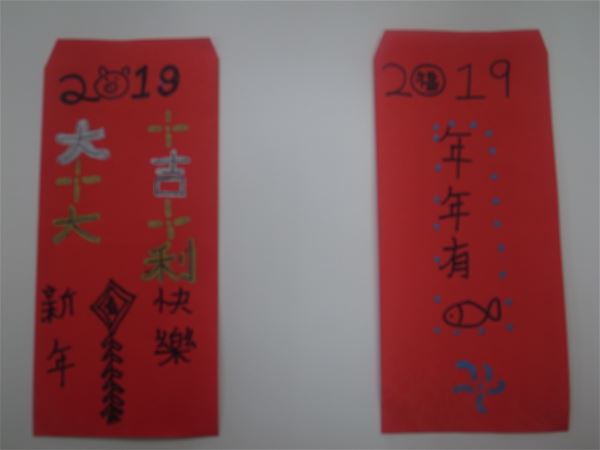 2019
大十大
十吉十利
新年
快樂
2福19
年年有